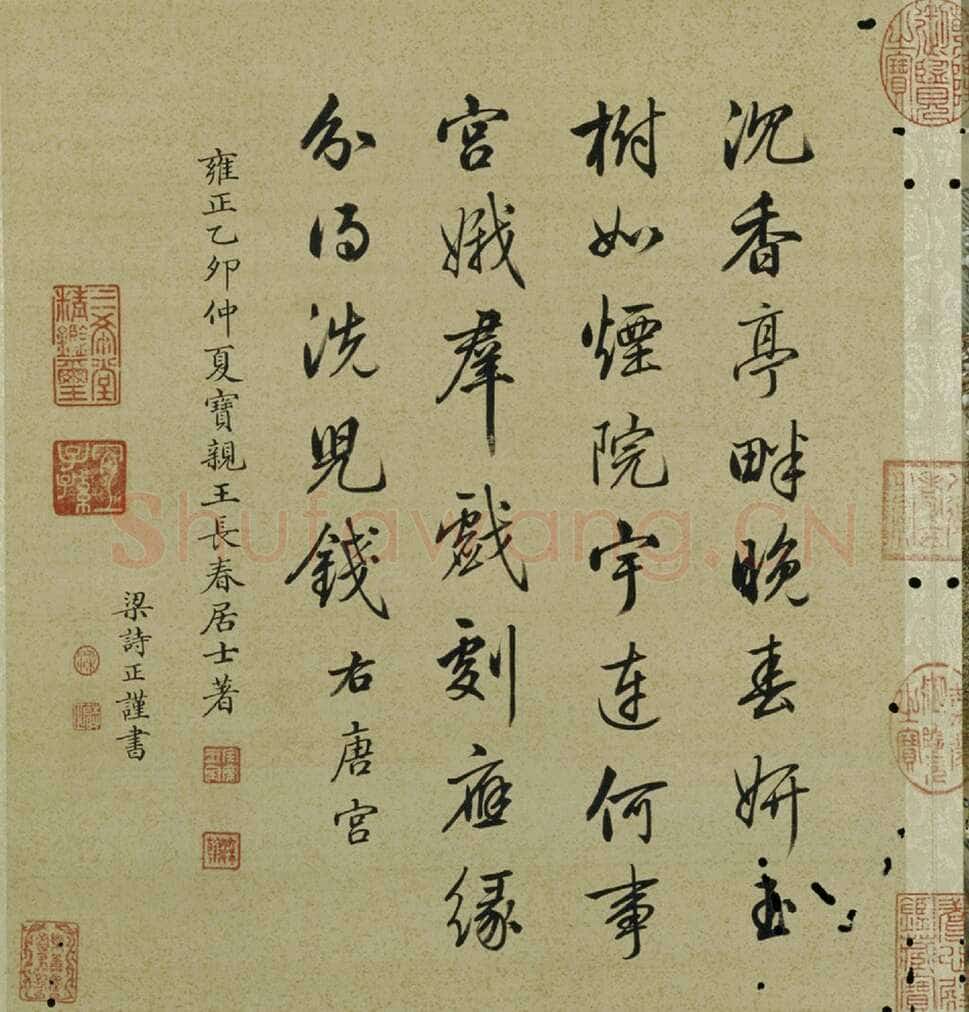 沉香亭畔晚春妍
樹如煙院宇連何事
宮娥羣戲劇應緣
分得洗兒錢 右唐宮
雍正乙卯仲夏寶親王長春居士著
梁詩正謹書
三希堂精鑑璽
宜子孫
Shufawang.CN